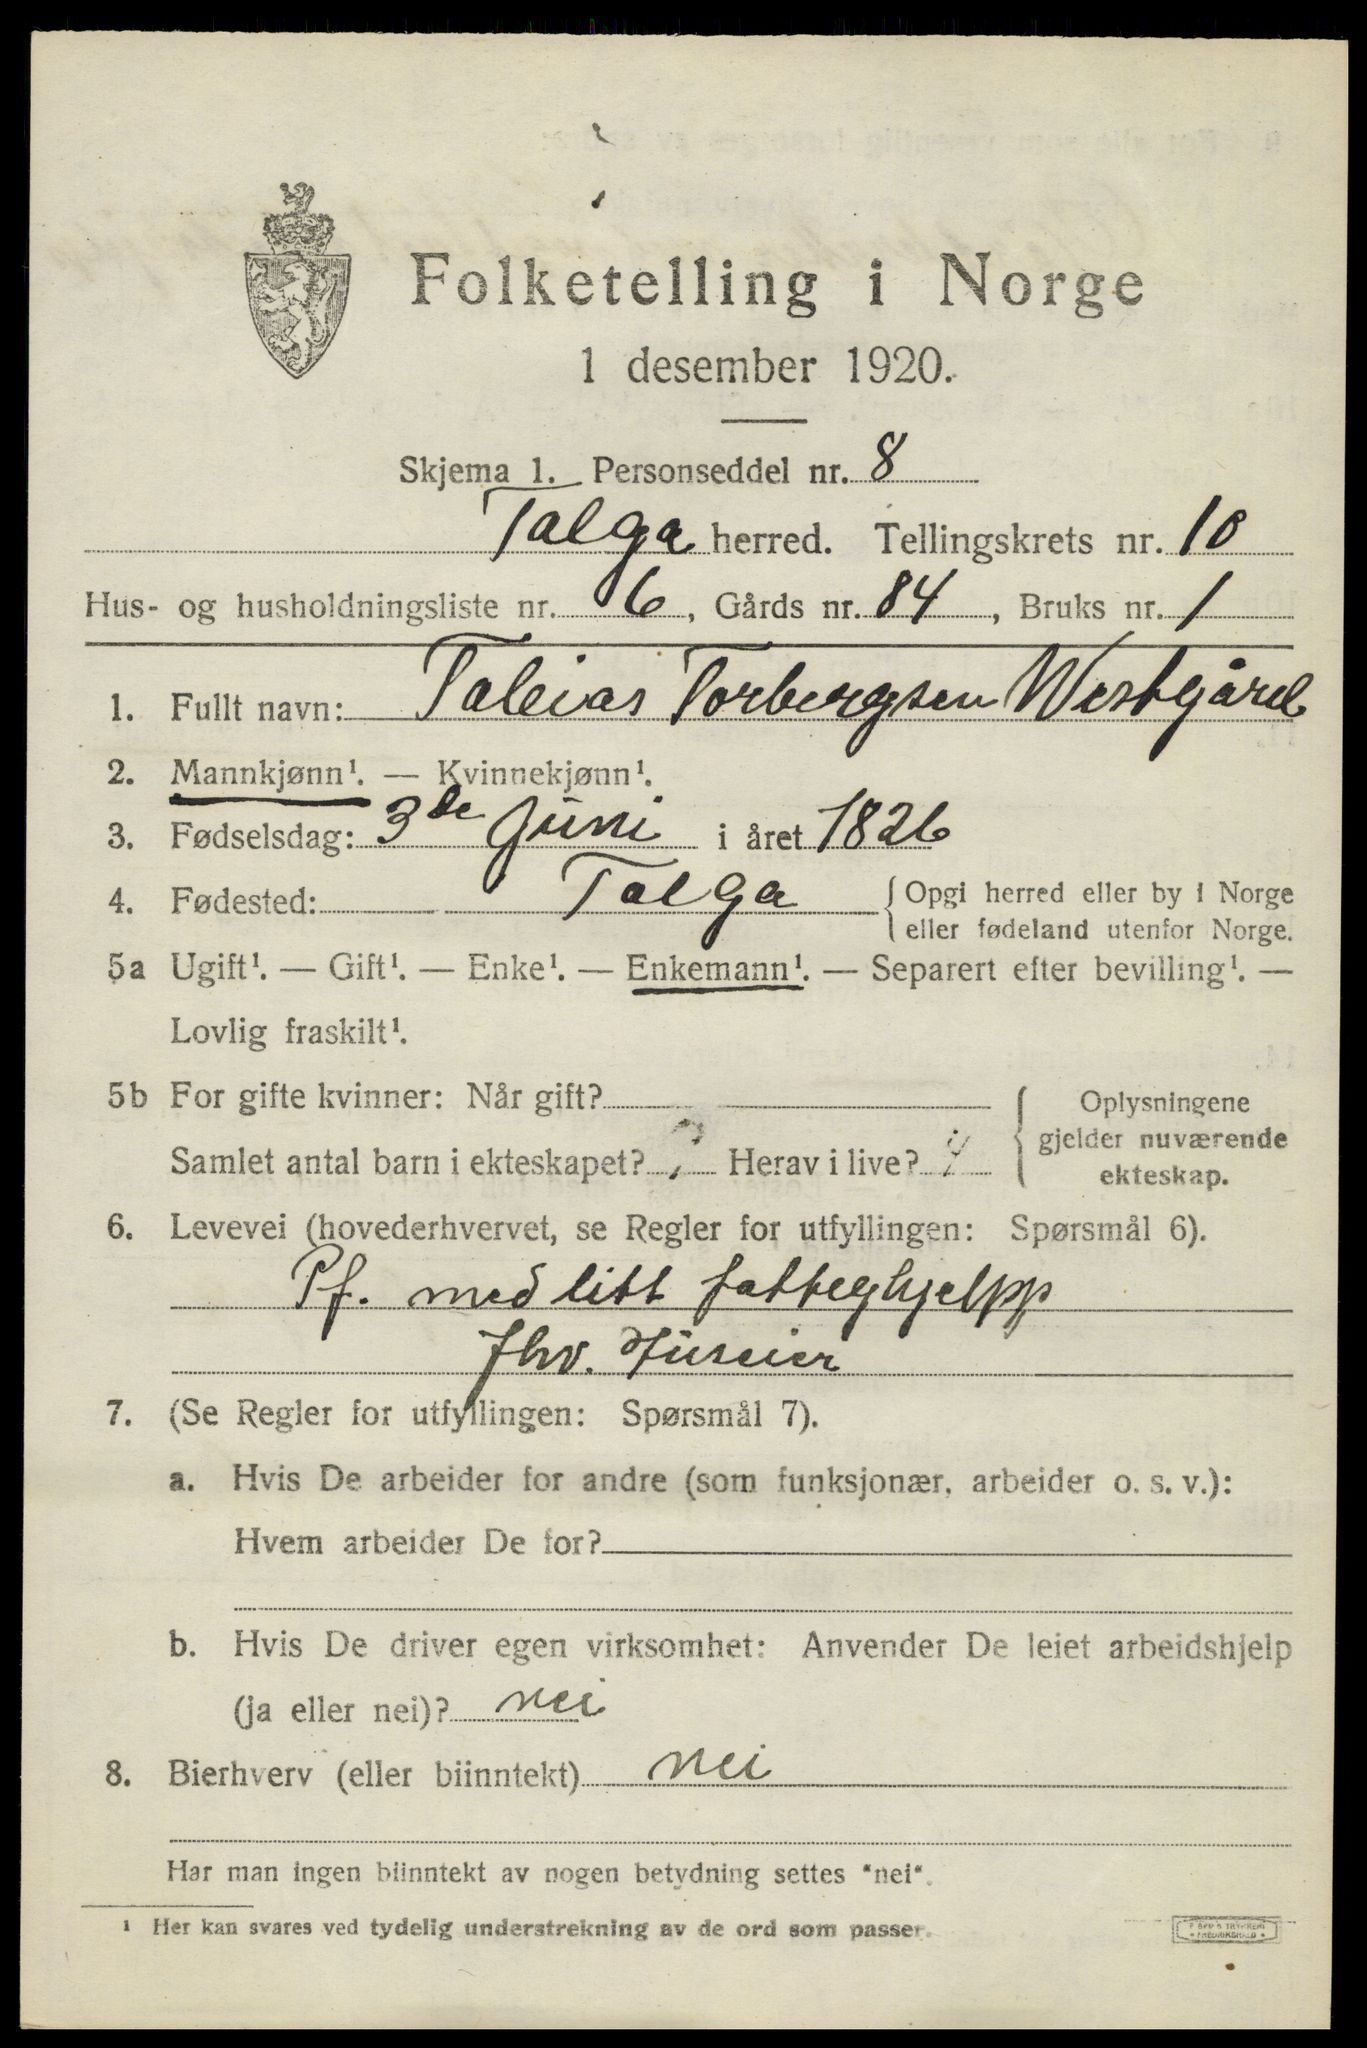 Folketelling i Norge
1 desember 1920.
Skjema 1. Personseddel nr. 8
Talga herred. Tellingskrets nr. 10
Hus- og husholdningsliste nr. 6, Gårds nr. 84, Bruks nr. 1
1. Fullt navn: Tobias Torbergsen Westgård
2. Mannkjønn¹. — Kvinnekjønn¹.
3. Fødselsdag: 3de Juni i året 1826
4. Fødested: Talga {Opgi herred eller by i Norge
eller fødeland utenfor Norge.
5a Ugift¹. — Gift¹. — Enke¹. — Enkemann¹. — Separert efter bevilling¹. —
Lovlig fraskilt¹.
5b For gifte kvinner: Når gift?
Samlet antal barn i ekteskapet? Herav i live?
{Oplysningene
gjelder nuværende
ekteskap.
6. Levevei (hovederhvervet, se Regler for utfyllingen: Spørsmål 6).
Pf. med litt fattighjelpp
fhv. Huseier
7. (Se Regler for utfyllingen: Spørsmål 7).
a. Hvis De arbeider for andre (som funksjonær, arbeider o. s. v.):
Hvem arbeider De for?
b. Hvis De driver egen virksomhet: Anvender De leiet arbeidshjelp
(ja eller nei)? nei
8. Bierhverv (eller biinntekt) nei
Har man ingen biinntekt av nogen betydning settes "nei".
¹ Her kan svares ved tydelig understrekning av de ord som passer.